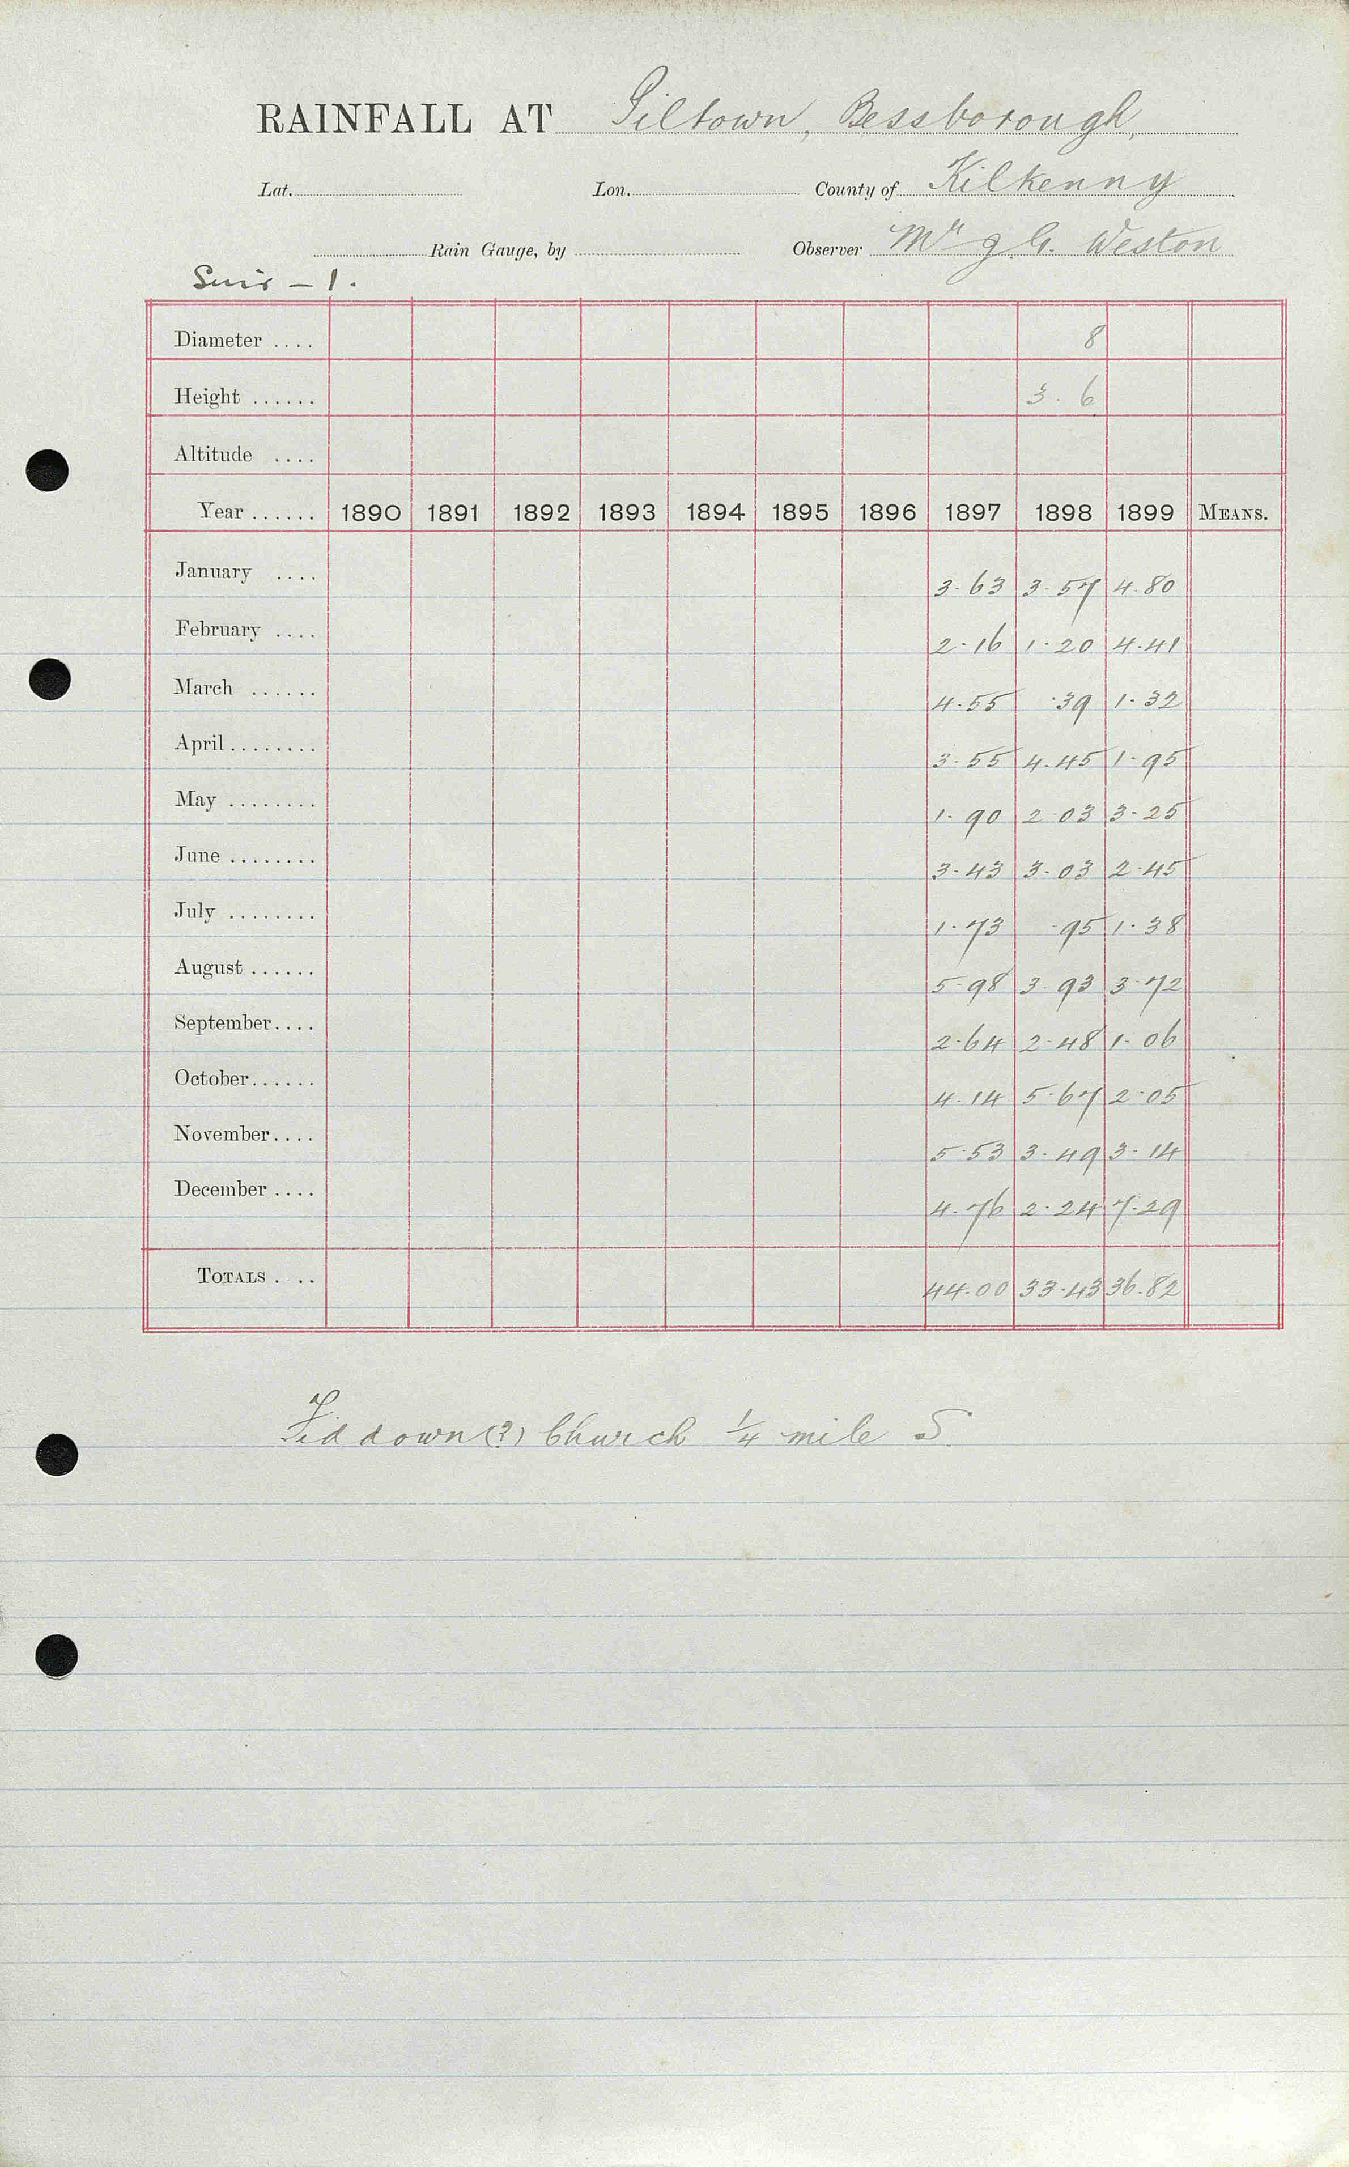 RAINFALL AT Piltown, Bessborough,
Lat. Lon. County of Kilkenny
Rain Gauge, by Observer Mr J G. Weston
Suir - 1.
Diameter .... 8
Height ...... 3. 6
Altitude ....
Year ...... 1890 1891 1892 1893 1894 1895 1896 1897 1898 1899 MEANS.
January .... 3.63 3.57 4.80
February .... 2.16 1.20 4.41
March ...... 4.55 .39 1.32
April ........ 3.55 4.45 1.95
May ........ 1.90 2.03 3.25
June ........ 3.43 3.03 2.45
July ........ 1.73 .95 1.38
August ...... 5.98 3.93 3.72
September.... 2.64 2.48 1.06
October...... 4.14 5.67 2.05
November.... 5.53 3.49 3.14
December .... 4.76 2.24 7.29
TOTALS . .. 44.00 33.43 36.82
Fiddown(?) Church 1/4 mile S.